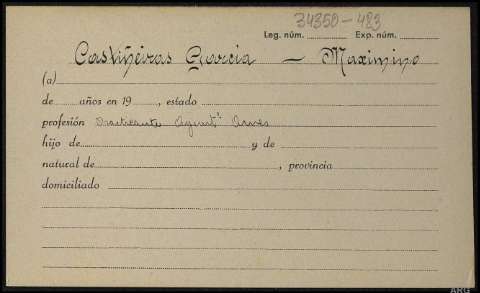 34350-483
Leg. núm. Exp. núm.
Castiñeiras Garcia — Maximino
(a)
de años en 19 , estado
profesión Practicante Ayunt.º
hijo de y de
natural de , provincia
domiciliado
ARG